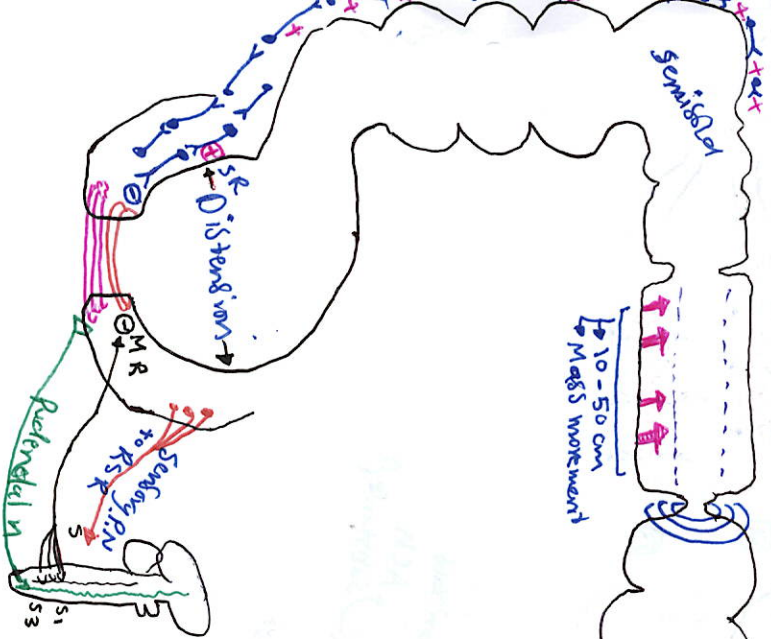 Semisolid
10-50 cm
Mass movement
SR
Distension
MR
Sensory.P.N
to
S
Pudendal n
S1
S3